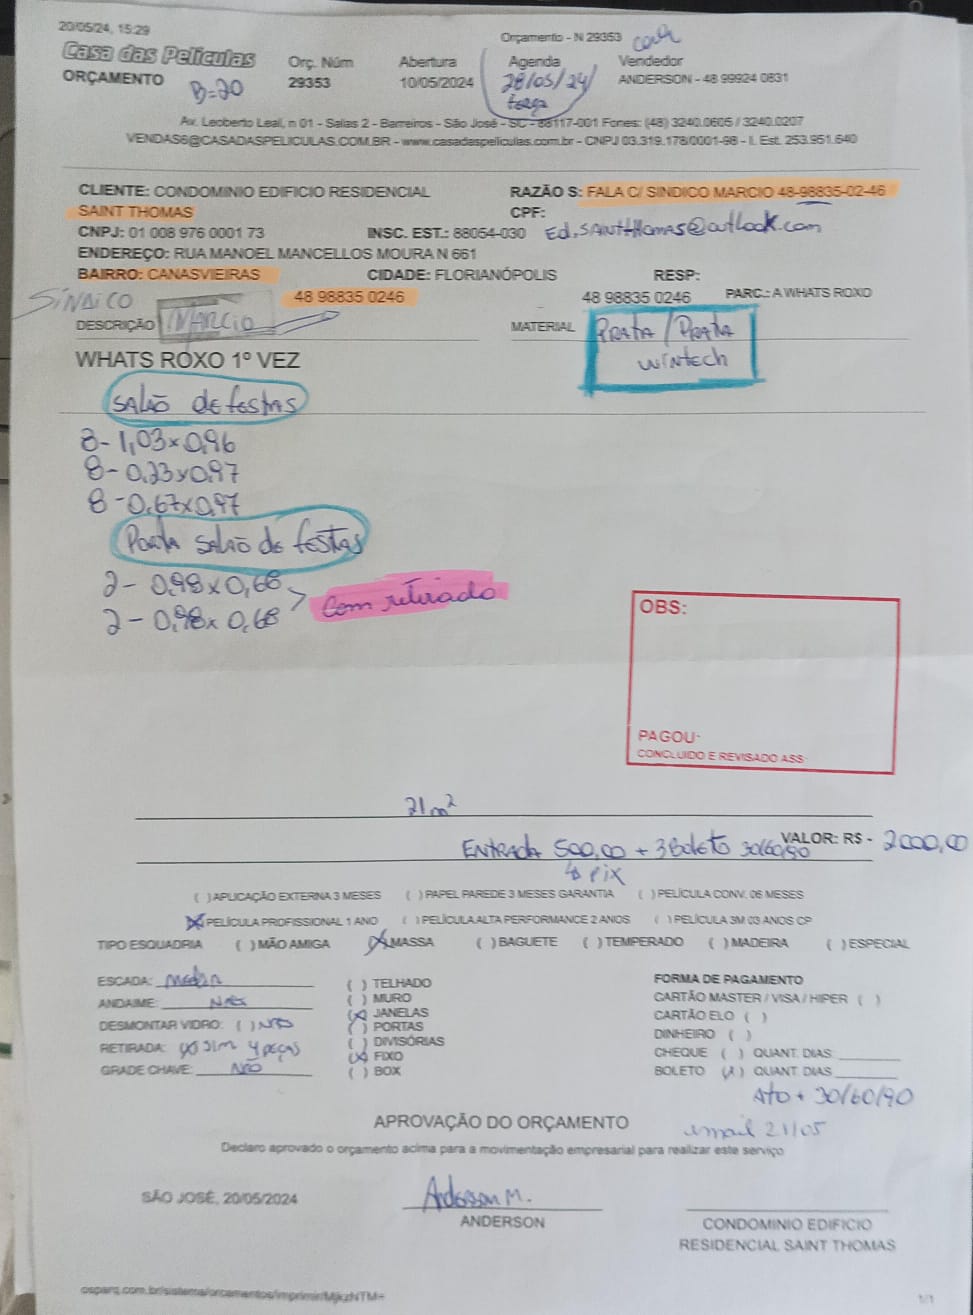 20/05/24, 15:29
Orçamento - N 29353
Casa das Películas
Orç. Núm
Abertura
Agenda
Vendedor
ORÇAMENTO
B=20
29353
10/05/2024
28/05/24
terça
ANDERSON - 48 99924 0831
Av. Leoberto Leal, n 01 - Salas 2 - Barreiros - São José - SC - 88117-001 Fones: (48) 3240.0605 / 3240.0207
VENDAS6@CASADASPELICULAS.COM.BR - www.casadaspeliculas.com.br - CNPJ 03.319.178/0001-98 - I. Est. 253.951.640
CLIENTE: CONDOMINIO EDIFICIO RESIDENCIAL
RAZÃO S: FALA C/ SINDICO MARCIO 48-98835-02-46
SAINT THOMAS
CPF:
CNPJ: 01 008 976 0001 73
INSC. EST.: 88054-030
Ed.SAINTTHOMAS@outlook.com
ENDEREÇO: RUA MANOEL MANCELLOS MOURA N 661
BAIRRO: CANASVIEIRAS
CIDADE: FLORIANÓPOLIS
RESP:
SINDICO
48 98835 0246
48 98835 0246
PARC.: A WHATS ROXO
DESCRIÇÃO
MARCIO
MATERIAL
PRATA / PRATA
WINTECH
WHATS ROXO 1º VEZ
SALÃO DE FESTAS
8 - 1,03 x 0,96
8 - 0,23 x 0,97
8 - 0,67 x 0,97
PORTA SALÃO DE FESTAS
2 - 0,98 x 0,68
2 - 0,98 x 0,68
> com retirado
OBS:
PAGOU:
CONCLUIDO E REVISADO ASS:
21 m²
ENTRADA 500,00 + 3 Boleto 30/60/90
VALOR: R$ - 2000,00
PIX
( ) APLICAÇÃO EXTERNA 3 MESES ( ) PAPEL PAREDE 3 MESES GARANTIA ( ) PELÍCULA CONV. 06 MESES
(X) PELÍCULA PROFISSIONAL 1 ANO ( ) PELÍCULA ALTA PERFORMANCE 2 ANOS ( ) PELÍCULA 3M 03 ANOS CP
TIPO ESQUADRIA ( ) MÃO AMIGA (X) MASSA ( ) BAGUETE ( ) TEMPERADO ( ) MADEIRA ( ) ESPECIAL
ESCADA: Media
( ) TELHADO
FORMA DE PAGAMENTO
ANDAIME: Não
( ) MURO
CARTÃO MASTER / VISA / HIPER ( )
(X) JANELAS
CARTÃO ELO ( )
DESMONTAR VIDRO: ( ) NÃO
( ) PORTAS
DINHEIRO ( )
RETIRADA: (X) Sim 4 peças
( ) DIVISÓRIAS
CHEQUE ( ) QUANT. DIAS
(X) FIXO
GRADE CHAVE: NÃO
( ) BOX
BOLETO (X) QUANT. DIAS
Ato + 30/60/90
APROVAÇÃO DO ORÇAMENTO
email 21/05
Declaro aprovado o orçamento acima para a movimentação empresarial para realizar este serviço
SÃO JOSÉ, 20/05/2024
Anderson M.
ANDERSON
CONDOMINIO EDIFICIO
RESIDENCIAL SAINT THOMAS
osparq.com.br/sistema/orcamentos/imprimir/MjkzNTM=
1/1